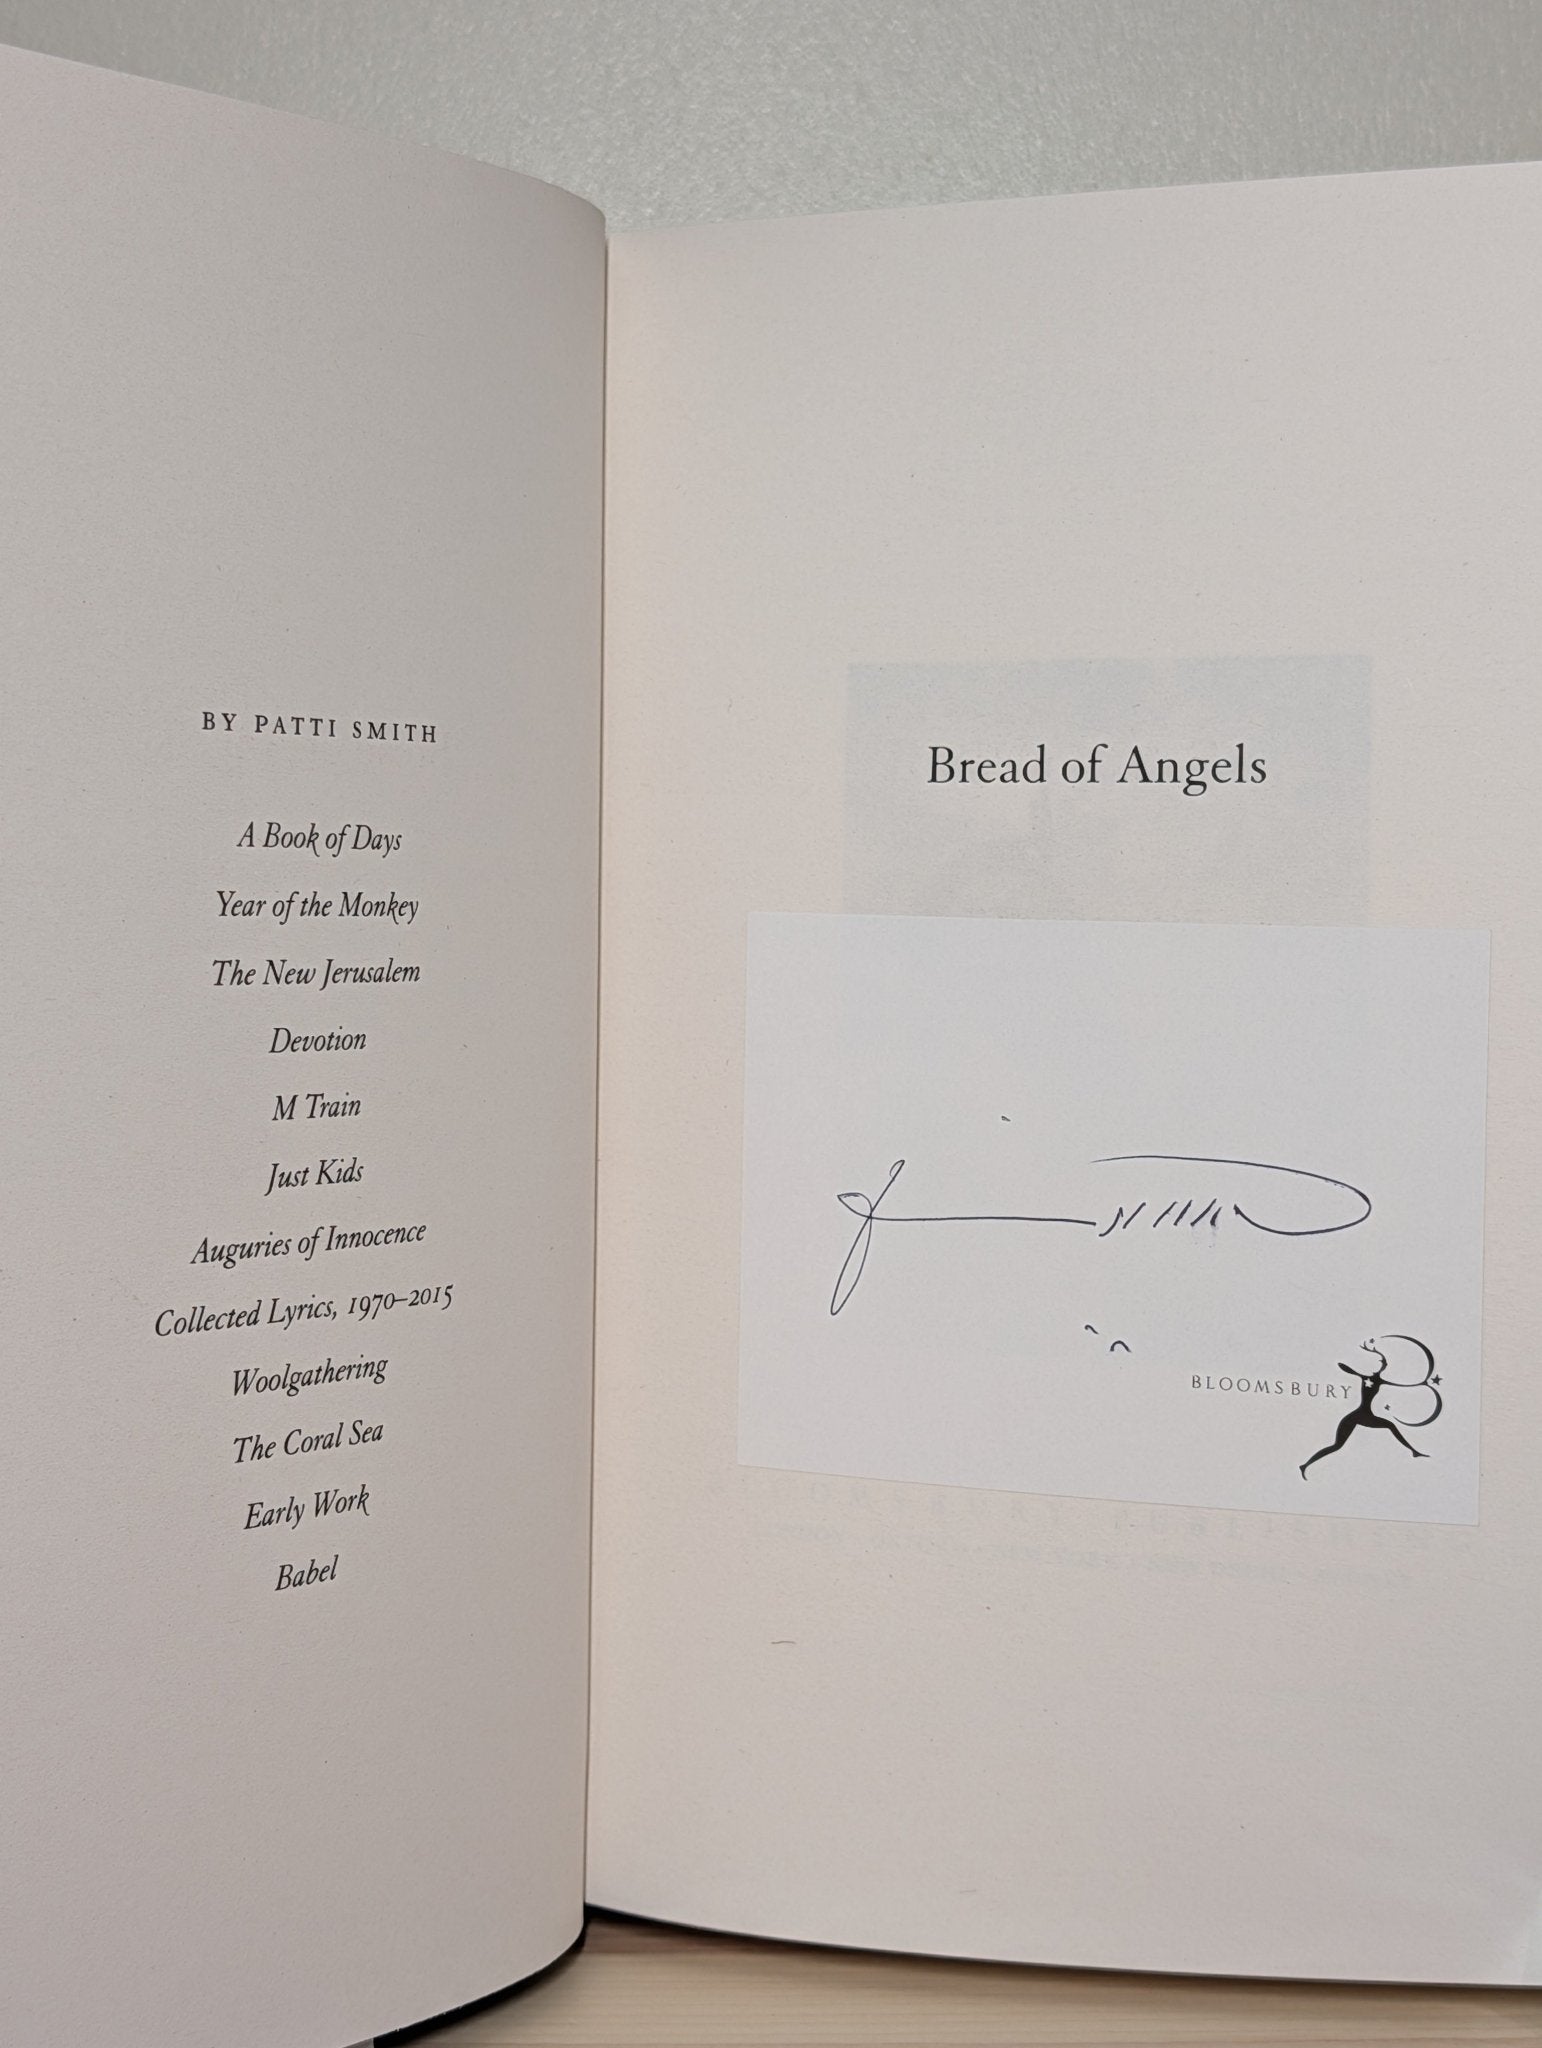 BY PATTI SMITH
A Book of Days
Year of the Monkey
The New Jerusalem
Devotion
M Train
Just Kids
Auguries of Innocence
Collected Lyrics, 1970–2015
Woolgathering
The Coral Sea
Early Work
Babel
Bread of Angels
BLOOMSBURY